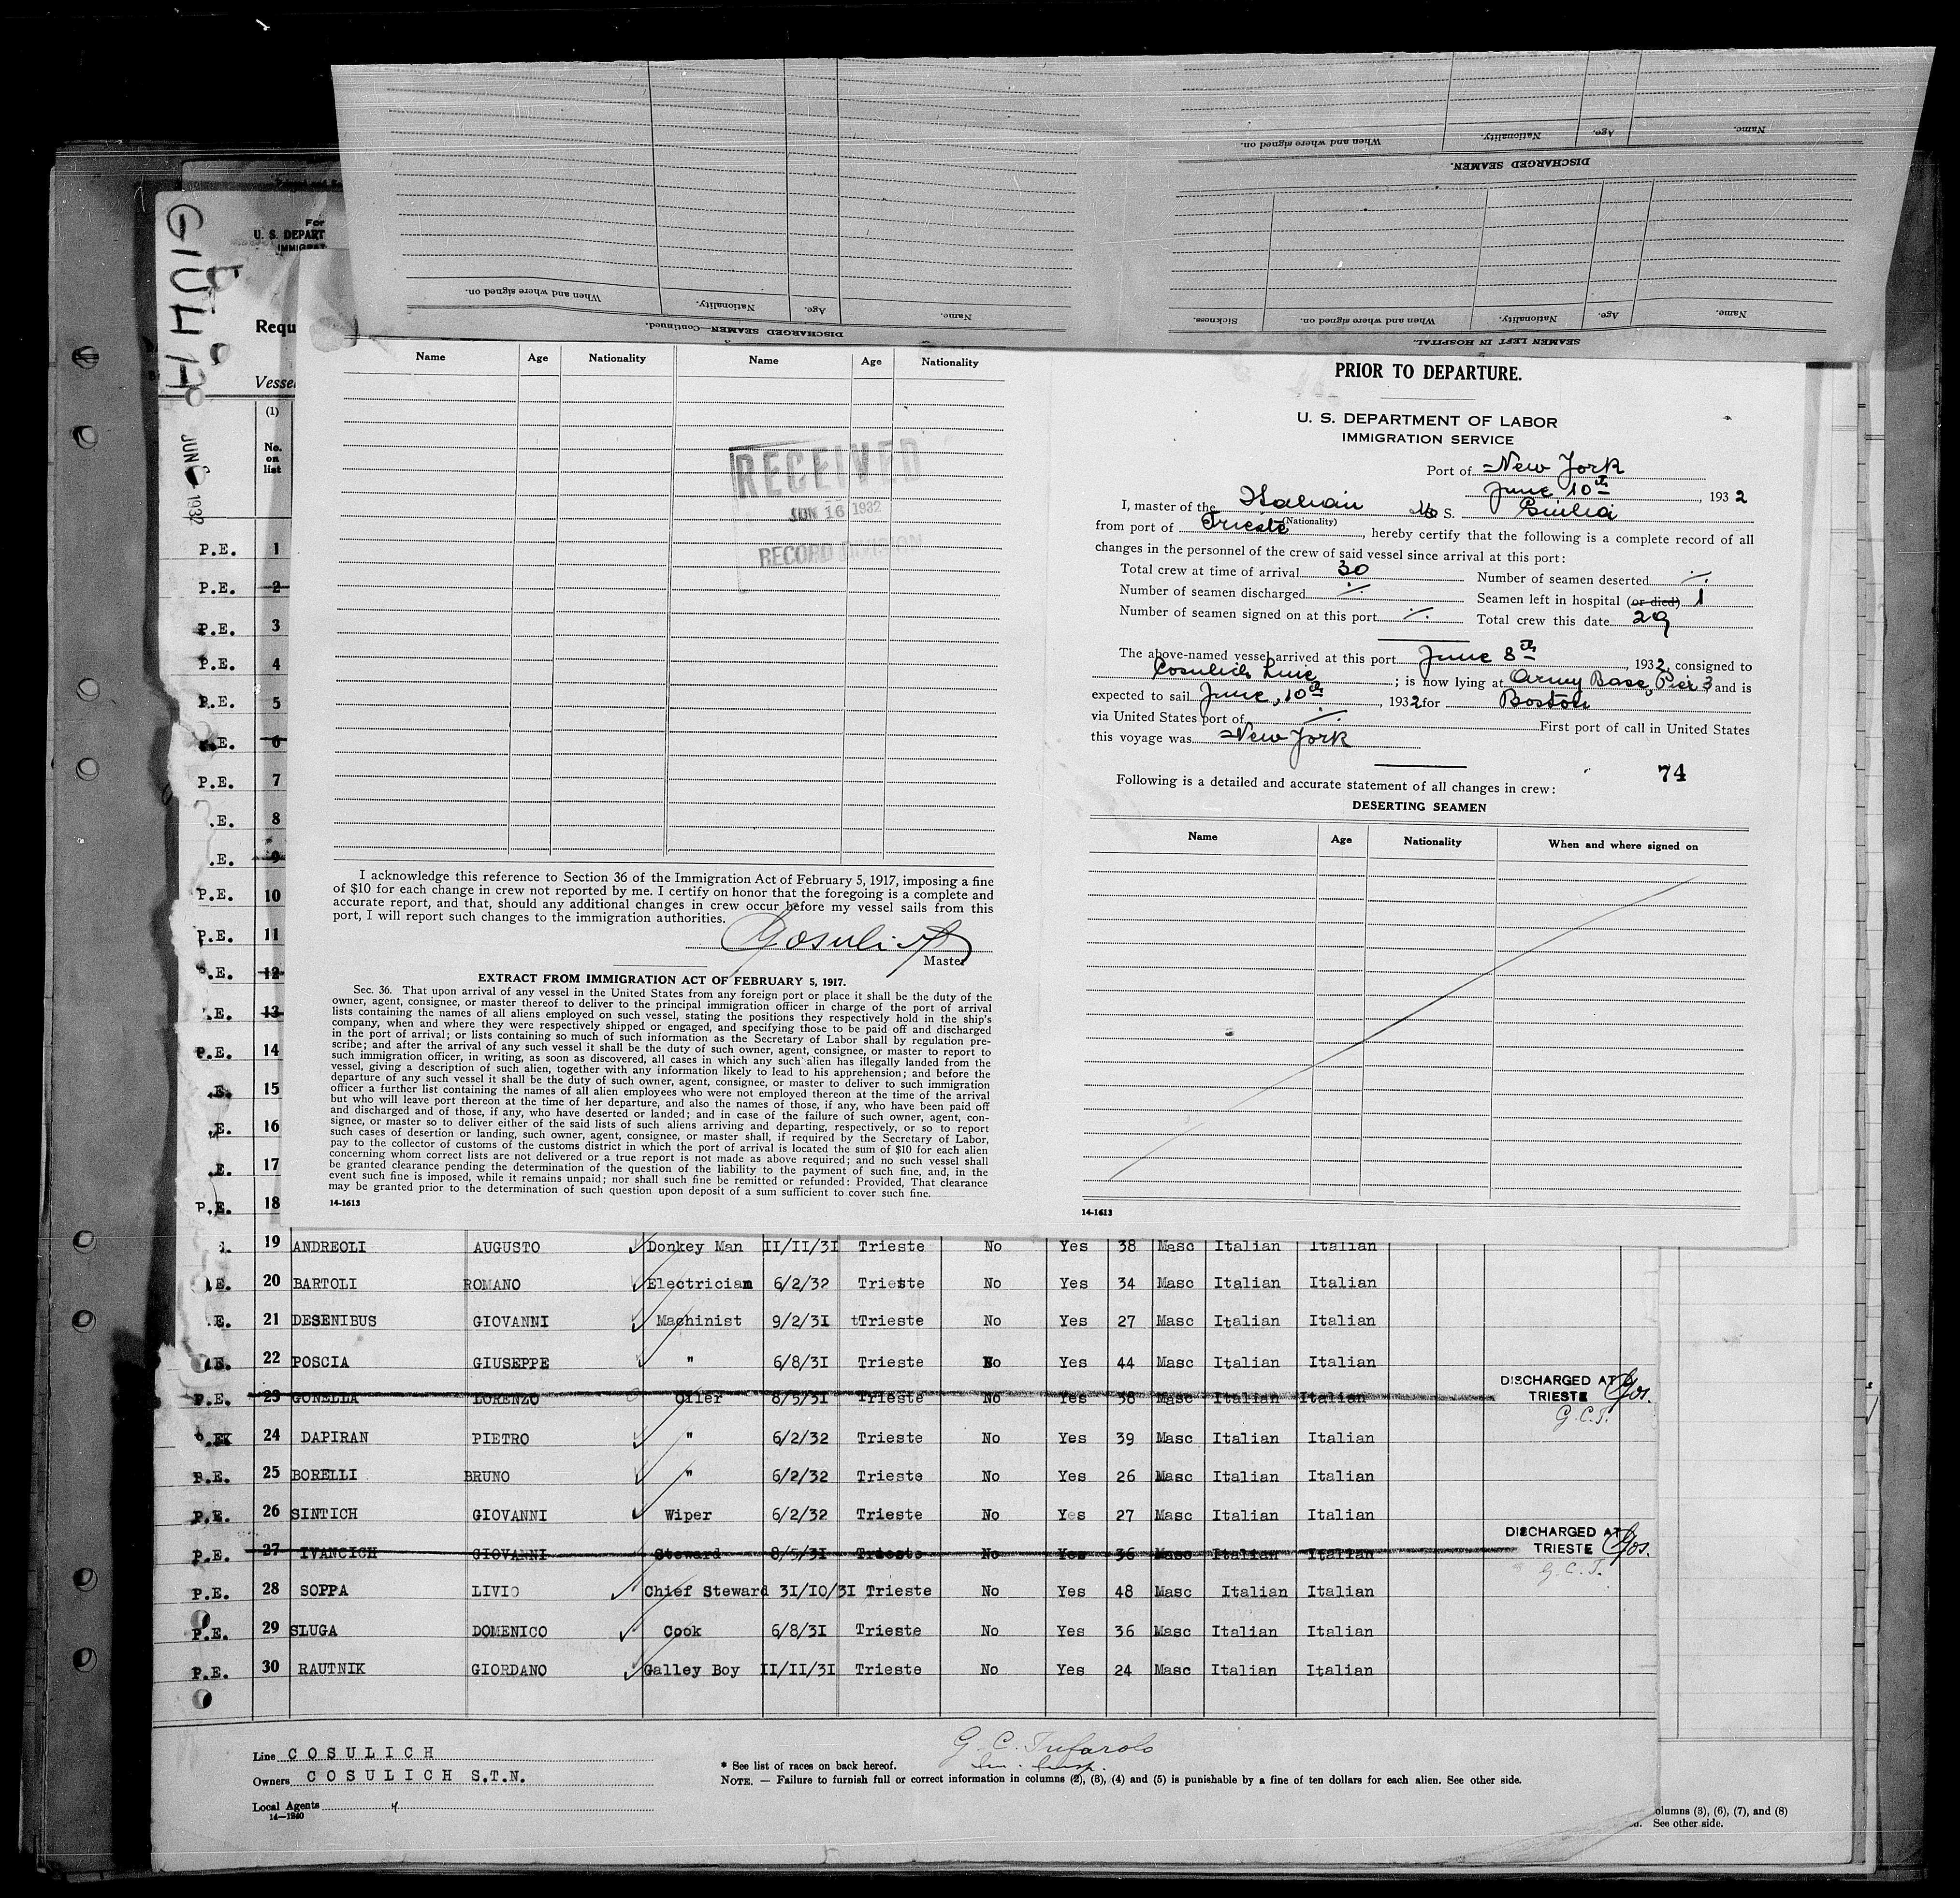 GIULIA
JUN 1932
For
U. S. DEPART
IMMIGRAT
Requ
Vesse
(1)
No.
on
list
SEAMEN LEFT IN HOSPITAL.
Name. Age. Nationality. When and where signed on. Sickness.
DISCHARGED SEAMEN.
Name. Age. Nationality. When and where signed on.
DISCHARGED SEAMEN—Continued.
Name. Age. Nationality. When and where signed on.
Name Age Nationality Name Age Nationality
RECEIVED
JUN 16 1932
RECORD DIVISION
I acknowledge this reference to Section 36 of the Immigration Act of February 5, 1917, imposing a fine
of $10 for each change in crew not reported by me. I certify on honor that the foregoing is a complete and
accurate report, and that, should any additional changes in crew occur before my vessel sails from this
port, I will report such changes to the immigration authorities.
Master
EXTRACT FROM IMMIGRATION ACT OF FEBRUARY 5, 1917.
Sec. 36. That upon arrival of any vessel in the United States from any foreign port or place it shall be the duty of the
owner, agent, consignee, or master thereof to deliver to the principal immigration officer in charge of the port of arrival
lists containing the names of all aliens employed on such vessel, stating the positions they respectively hold in the ship's
company, when and where they were respectively shipped or engaged, and specifying those to be paid off and discharged
in the port of arrival; or lists containing so much of such information as the Secretary of Labor shall by regulation pre-
scribe; and after the arrival of any such vessel it shall be the duty of such owner, agent, consignee, or master to report to
such immigration officer, in writing, as soon as discovered, all cases in which any such alien has illegally landed from the
vessel, giving a description of such alien, together with any information likely to lead to his apprehension; and before the
departure of any such vessel it shall be the duty of such owner, agent, consignee, or master to deliver to such immigration
officer a further list containing the names of all alien employees who were not employed thereon at the time of the arrival
but who will leave port thereon at the time of her departure, and also the names of those, if any, who have been paid off
and discharged and of those, if any, who have deserted or landed; and in case of the failure of such owner, agent, con-
signee, or master so to deliver either of the said lists of such aliens arriving and departing, respectively, or so to report
such cases of desertion or landing, such owner, agent, consignee, or master shall, if required by the Secretary of Labor,
pay to the collector of customs of the customs district in which the port of arrival is located the sum of $10 for each alien
concerning whom correct lists are not delivered or a true report is not made as above required; and no such vessel shall
be granted clearance pending the determination of the question of the liability to the payment of such fine, and, in the
event such fine is imposed, while it remains unpaid; nor shall such fine be remitted or refunded: Provided, That clearance
may be granted prior to the determination of such question upon deposit of a sum sufficient to cover such fine.
14-1613
PRIOR TO DEPARTURE.
U. S. DEPARTMENT OF LABOR
IMMIGRATION SERVICE
Port of New York
June 10th, 1932
I, master of the Italian M S. Giulia
(Nationality)
from port of Trieste, hereby certify that the following is a complete record of all
changes in the personnel of the crew of said vessel since arrival at this port:
Total crew at time of arrival 30 Number of seamen deserted ./.
Number of seamen discharged ./. Seamen left in hospital (or died) 1
Number of seamen signed on at this port ./. Total crew this date 29
The above-named vessel arrived at this port June 8th, 1932, consigned to
Cosulich Line; is now lying at Army Base, Pier 3 and is
expected to sail June, 10th, 1932 for Boston
via United States port of ./. First port of call in United States
this voyage was New York
74
Following is a detailed and accurate statement of all changes in crew:
DESERTING SEAMEN
Name Age Nationality When and where signed on
14-1613
P.E. 1
P.E. 2
P.E. 3
P.E. 4
P.E. 5
.E. 6
P.E. 7
.E. 8
.E. 9
P.E. 10
P.E. 11
.E. 12
.E. 13
P.E. 14
.E. 15
.E. 16
.E. 17
P.E. 18
19 ANDREOLI AUGUSTO Donkey Man II/II/3I Trieste No Yes 38 Masc Italian Italian
.E. 20 BARTOLI ROMANO Electrician 6/2/32 Trieste No Yes 34 Masc Italian Italian
.E. 21 DESENIBUS GIOVANNI Machinist 9/2/3I tTrieste No Yes 27 Masc Italian Italian
.E. 22 POSCIA GIUSEPPE " 6/8/3I Trieste No Yes 44 Masc Italian Italian
P.E. 23 GONELLA LORENZO Oiler 8/5/3I Trieste No Yes 38 Masc Italian Italian DISCHARGED AT TRIESTE
G.C.T.
24 DAPIRAN PIETRO " 6/2/32 Trieste No Yes 39 Masc Italian Italian
P.E. 25 BORELLI BRUNO " 6/2/32 Trieste No Yes 26 Masc Italian Italian
P.E. 26 SINTICH GIOVANNI Wiper 6/2/32 Trieste No Yes 27 Masc Italian Italian
P.E. 27 IVANCICH GIOVANNI Steward 8/5/3I Trieste No Yes 36 Masc Italian Italian DISCHARGED AT TRIESTE
G.C.T.
P.E. 28 SOPPA LIVIO Chief Steward 3I/IO/3I Trieste No Yes 48 Masc Italian Italian
P.E. 29 SLUGA DOMENICO Cook 6/8/3I Trieste No Yes 36 Masc Italian Italian
P.E. 30 RAUTNIK GIORDANO Galley Boy II/II/3I Trieste No Yes 24 Masc Italian Italian
Line COSULICH
Owners COSULICH S.T.N.
Local Agents
14—1240
G. C. Tufarolo
* See list of races on back hereof.
NOTE. — Failure to furnish full or correct information in columns (2), (3), (4) and (5) is punishable by a fine of ten dollars for each alien. See other side.
olumns (3), (6), (7), and (8)
See other side.